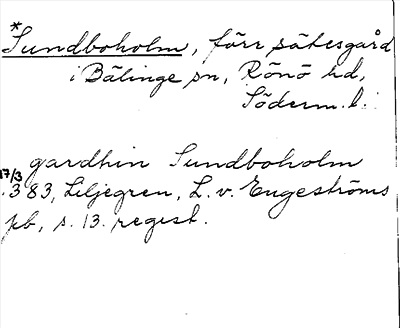 *
Sundboholm, förr sätesgård
i Bälinge sn, Rönö hd,
Söderm. l.
gardhin Sundboholm
17/3
1383, Liljegren, L. v. Engeströms
pb, s. 13. regist.